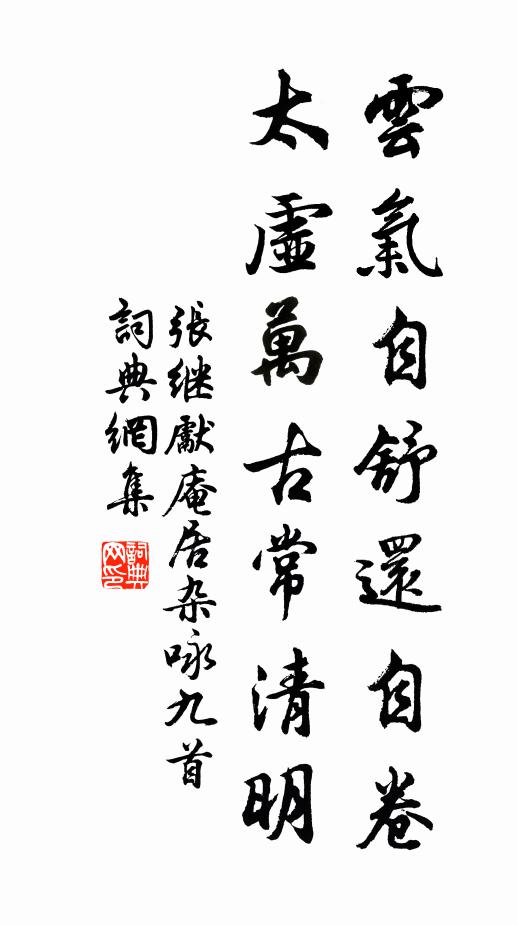 雲氣自舒還自卷
太虛萬古常清明
張继獻庵居杂咏九首
詞典網集
詞典网印